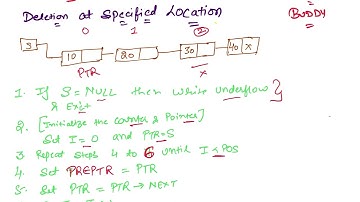 Deletion at Specified Location
BUDDY
0 1 2
S 10 20 30 40 X
PTR X
1. If S = NULL then write underflow
& Exit
2. [Initialize the counter & Pointer]
Set I = 0 and PTR = S
3 Repeat steps 4 to 6 until I < POS
4. Set PREPTR = PTR
5. Set PTR = PTR → NEXT